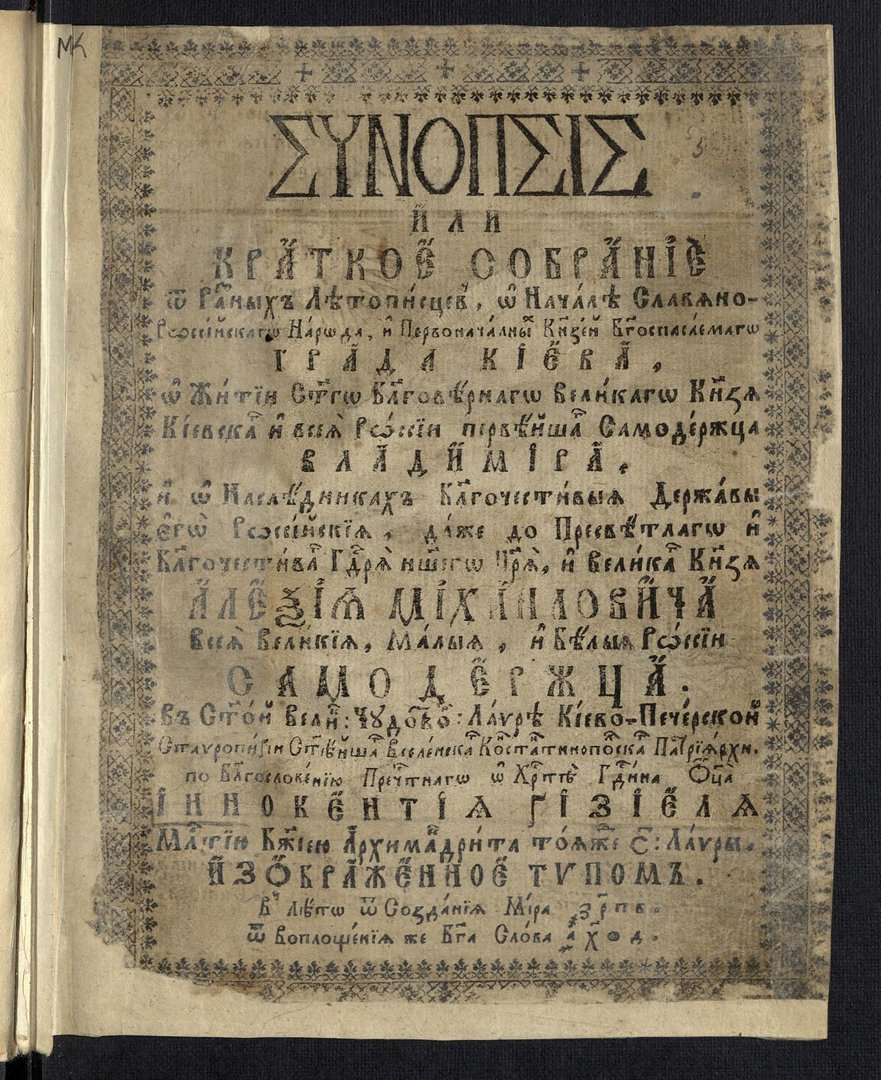 МК
ΣΥΝΟΠΣΙΣ
И҆ЛИ
КРА́ТКОЕ СОБРА́НЇЕ
ѿ Ра́зныхъ Лѣтопи́сцев, ѡ҆ Нача́лѣ Славѧно-
Рѡссі́йскагѡ Наро́да, и҆ Первонача́лныⷯ Кн҃зе́й Бг҃оспаса́емагѡ
ГРА́ДА КІ́ЕВА,
ѡ҆ Житїи Ст҃гѡ Бл҃говѣ́рнагѡ Вели́кагѡ Кн҃зѧ
Кі́евскаⷢ и҆ всеѧ̀ Рѡссі́и пе́рвѣйшаⷢ Самоде́ржца
ВЛАДИ́МІРА,
и҆ ѡ҆ Наслѣ́дникахъ Бл҃гочести́выѧ Держа́вы
є҆гѡ̀ Рѡссі́йскїѧ, да́же до Пресвѣ́тлагѡ и҆
Бл҃гочести́ваⷢ Гд҃рѧ̀ на́шегѡ Цр҃ѧ̀, и҆ Вели́каⷢ Кн҃зѧ
А҆ЛЕѮІ́Ѧ МІХА́ИЛОВИЧА
всеѧ̀ Вели́кїѧ, Ма́лыѧ, и҆ Бѣ́лыѧ Рѡссі́и
САМОДЕ́РЖЦА.
въ Ст҃о́й Вели́ⷦ: Чудотво́ⷬ: Ла́ѵрѣ Кі́ево-Пече́рской
Ставропигі́и Ст҃ѣ́йшаⷢ Вселе́нскаⷢ Кѡⷩстаⷩтинопо́лскаⷢ Патрїа́рхи.
по Бл҃гослове́нїю Пречⷭ҇тнагѡ ѡ҆ Хрⷭ҇тѣ̀ Гдⷭ҇и́на Ѻ҆ц҃а̀
І҆ННОКЕ́НТІѦ ГІЗІЕ́ЛѦ
Млⷭ҇тїю Бж҃їею А҆рхимаⷩдри́та то́ѧже С: Ла́ѵры.
И҆ЗѠБРАЖЕ́ННОЕ ТѴПОМЪ.
В лѣ́тѡ ѿ Созда́нїѧ Мі́ра ҂зрпв.
ѿ воплоще́нїѧ же Бг҃а Сло́ва ҂аход.